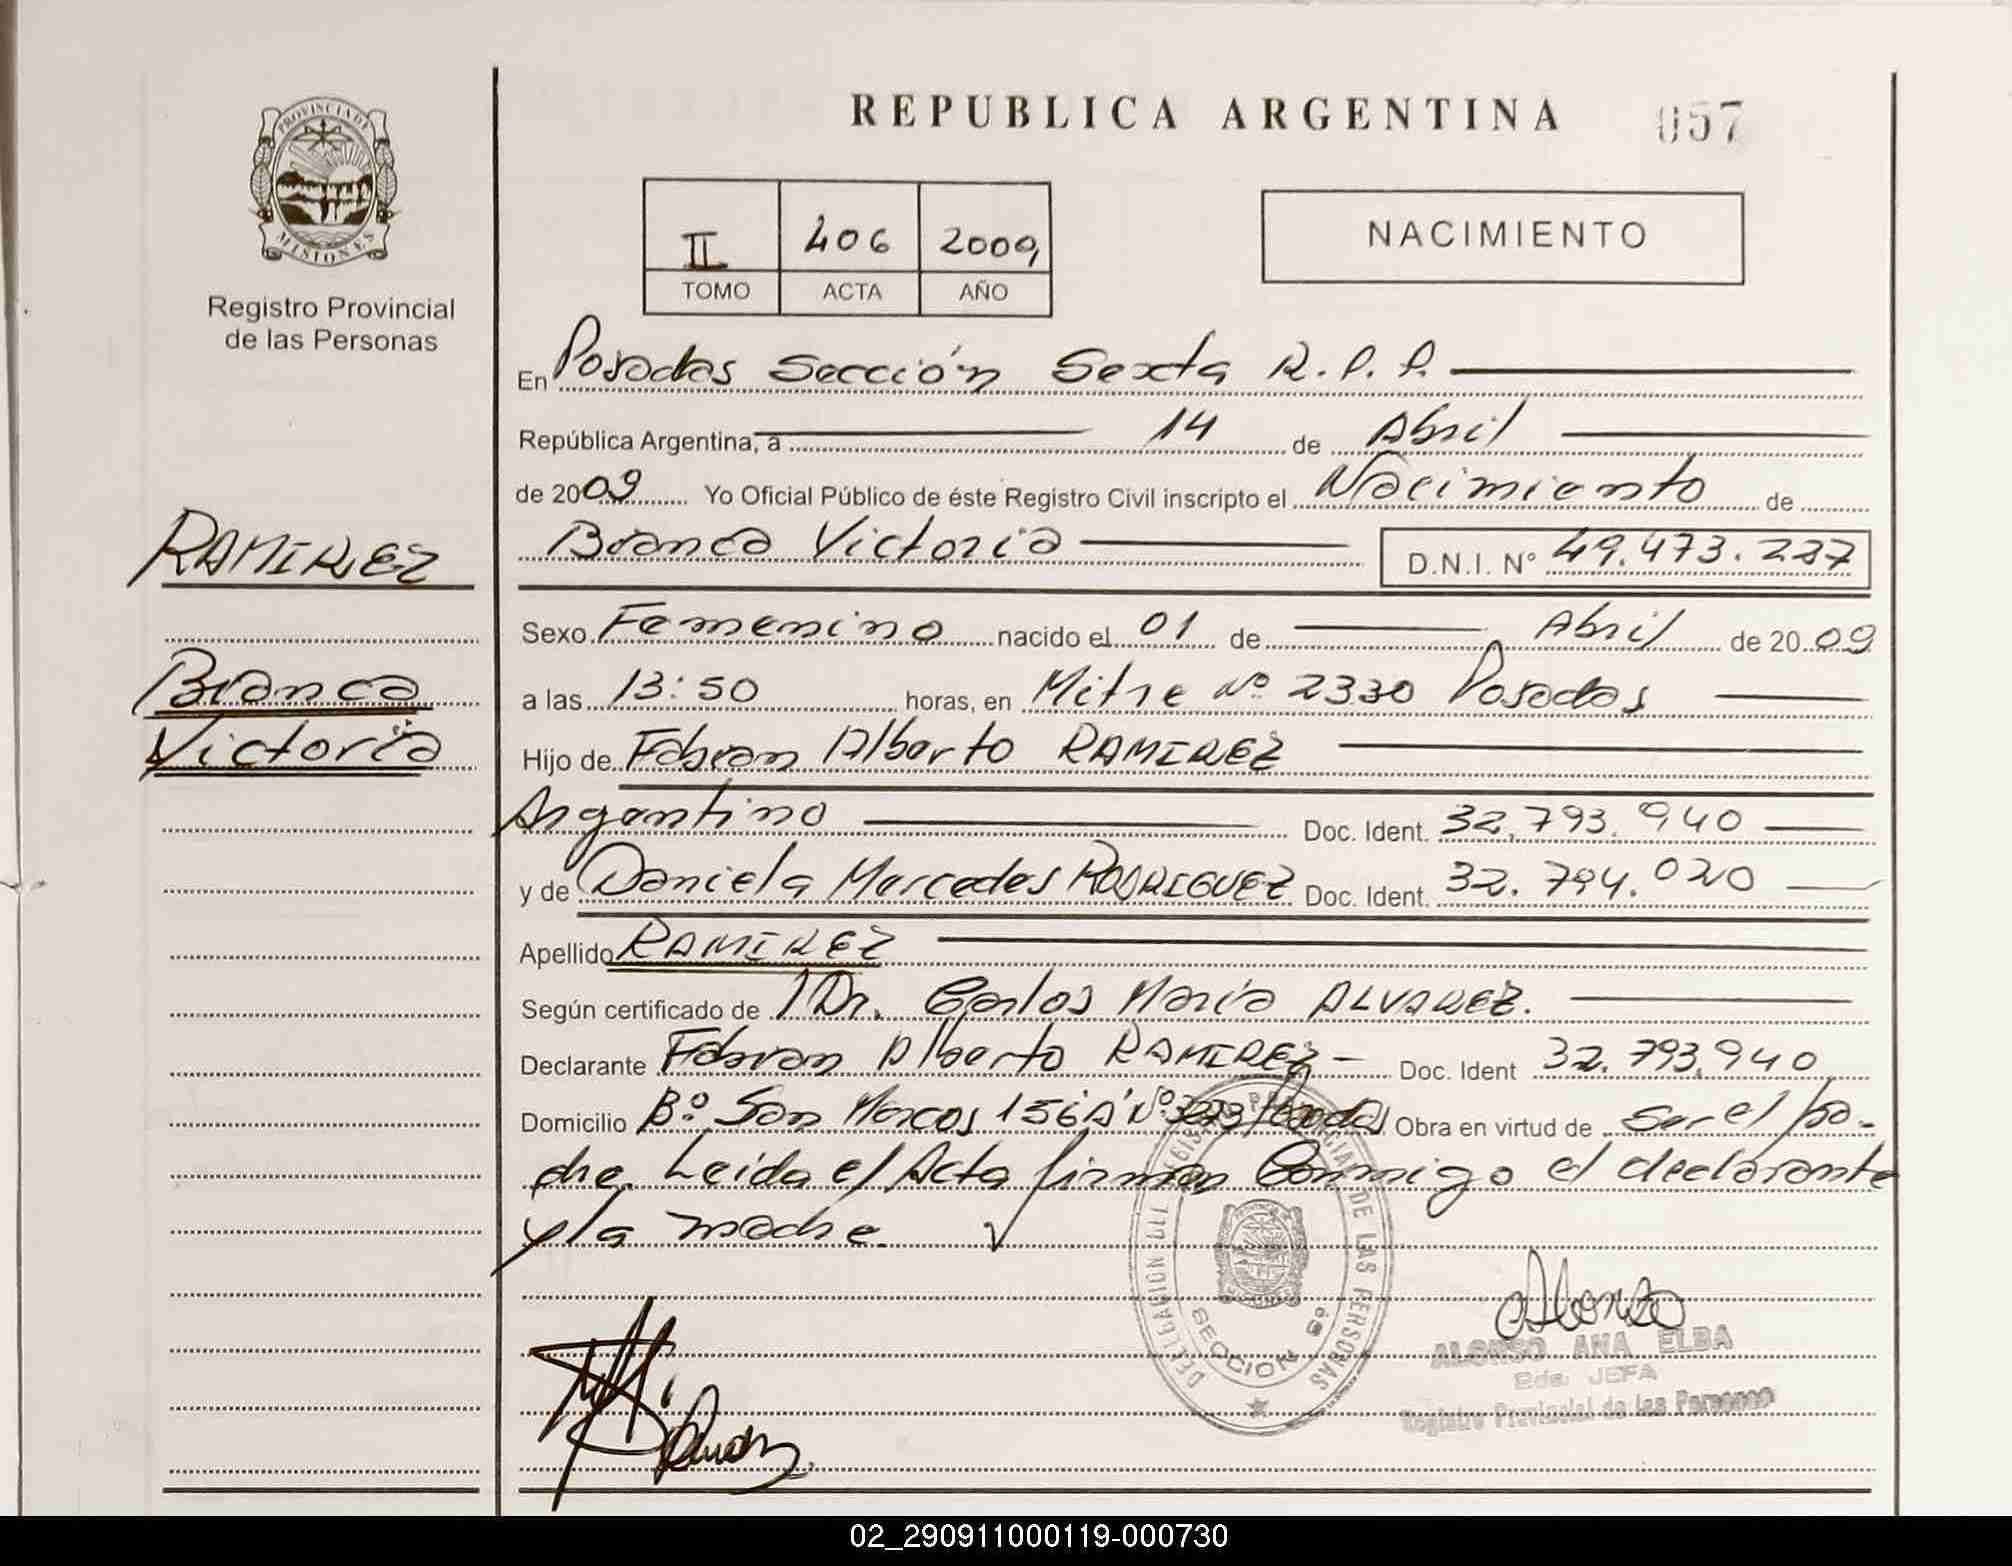 REPUBLICA ARGENTINA 057
PROVINCIA DE MISIONES
Registro Provincial
de las Personas
II 406 2009
TOMO ACTA AÑO
NACIMIENTO
En Posadas Sección Sexta R.P.P.
República Argentina, a 14 de Abril
de 2009 Yo Oficial Público de éste Registro Civil inscripto el Nacimiento de
Bianca Victoria D.N.I. Nº 49.473.237
RAMIREZ
Bianca
Victoria
Sexo Femenino nacido el 01 de Abril de 2009
a las 13:50 horas, en Mitre Nº 2330 Posadas
Hijo de Fabian Alberto RAMIREZ
Argentino Doc. Ident. 32.793.940
y de Daniela Mercedes RODRIGUEZ Doc. Ident. 32.794.020
Apellido RAMIREZ
Según certificado de Dr. Carlos María ALVAREZ.
Declarante Fabian Alberto RAMIREZ - Doc. Ident 32.793.940
Domicilio Bº San Marcos 156 "A" Nº Posadas Obra en virtud de ser el pa-
dre. Leída el Acta firman Conmigo el declarante
y la madre.
DELEGACION DEL REGISTRO PROVINCIAL DE LAS PERSONAS
SECCION 6º
Alonso
ALONSO ANA ELBA
Eda. JEFA
Registro Provincial de las Personas
02_290911000119-000730